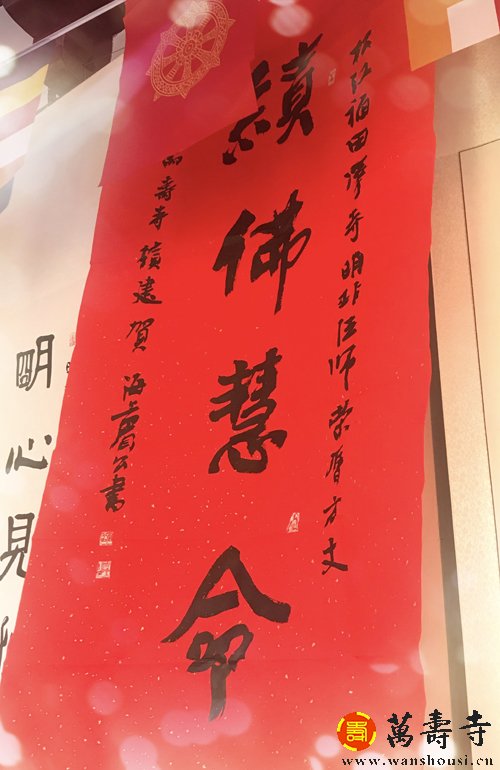 松江福田淨寺明法師榮膺方丈
續佛慧命
壽寺續建賀 海上公書
明心見
萬壽寺
www.wanshousi.cn